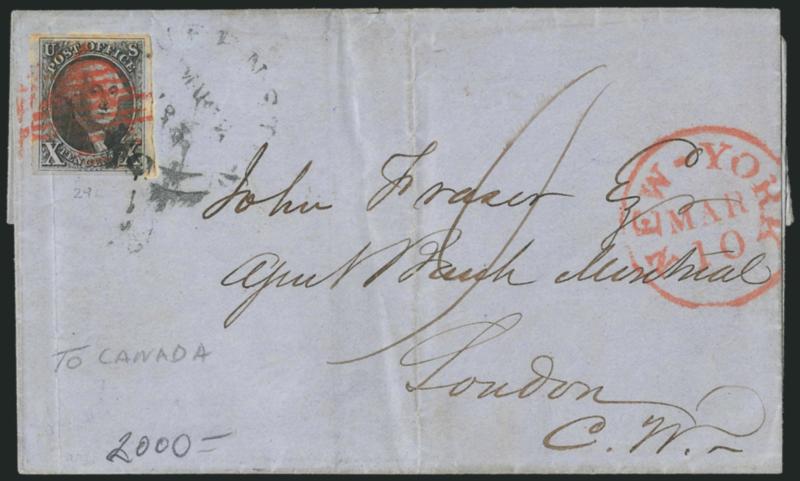 U S
POST OFFICE
X X
TEN CENTS
NEW-YORK
MAR
10
John Fraser Esqr
Agent Bank Montreal
London
C. W.
TO CANADA
2000-